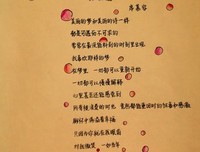 席慕容
美丽的梦和美丽的诗一样
都是可遇而不可求的
常常在最没能料到的时刻里出现
我喜欢那样的梦
在梦里 一切都可以重新开始
一切都可以慢慢解释
心里甚至还能感觉到
所有被浪费的时光 竟然都能重回时的狂喜和感激
胸怀中满溢着幸福
只因你就在我眼前
对我微笑 一如当年